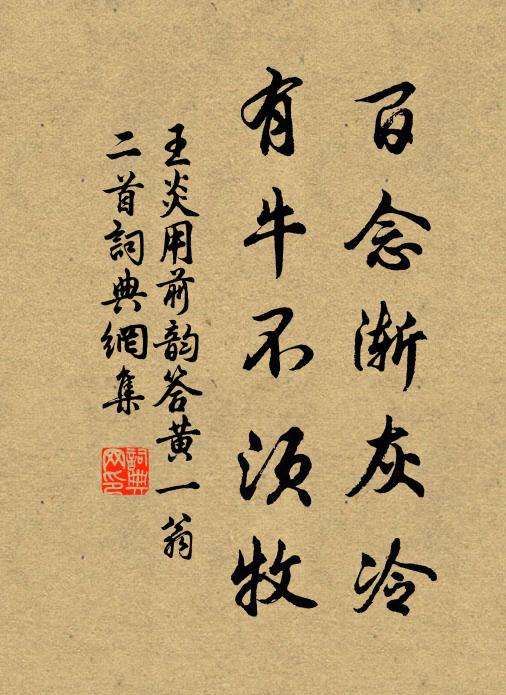 百念渐灰冷
有牛不须牧
王炎用前韵答黄一翁
二首詞典網集
詞典
网印